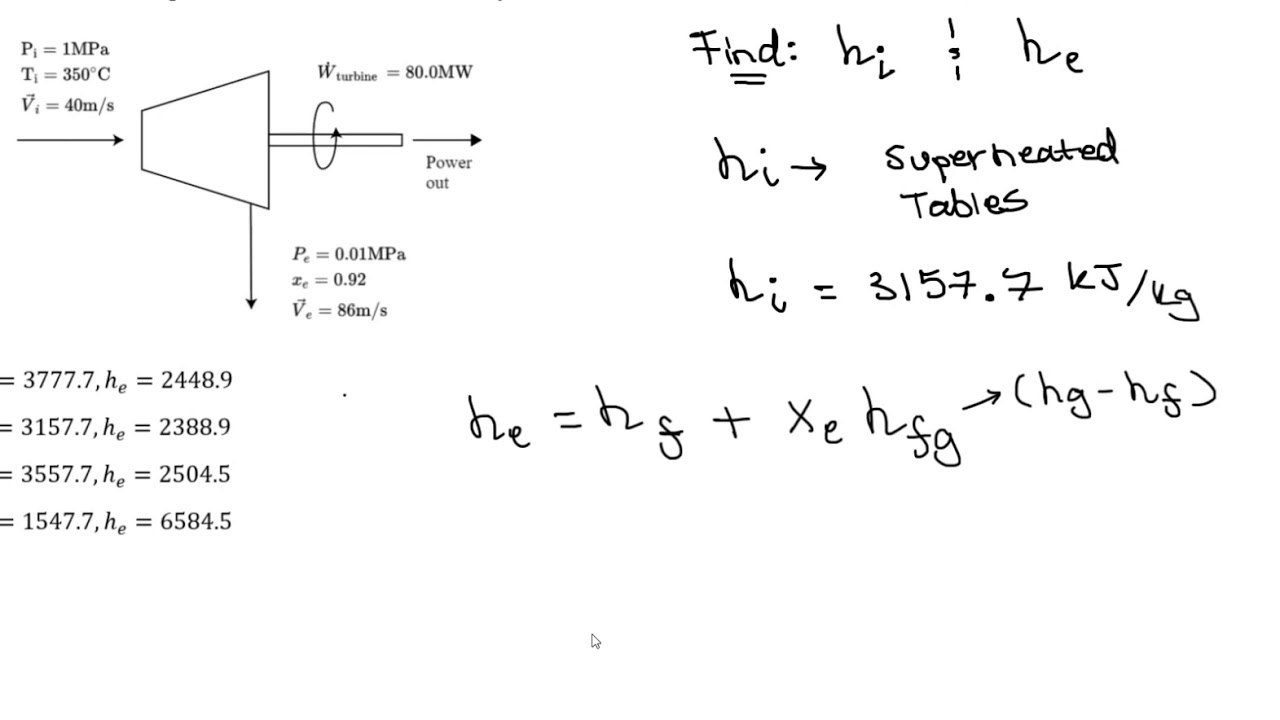 P_i = 1MPa
T_i = 350°C
V⃗_i = 40m/s
Ẇ_turbine = 80.0MW
Power
out
P_e = 0.01MPa
x_e = 0.92
V⃗_e = 86m/s
= 3777.7, h_e = 2448.9
= 3157.7, h_e = 2388.9
= 3557.7, h_e = 2504.5
= 1547.7, h_e = 6584.5
Find: h_i & h_e
h_i → Superheated
Tables
h_i = 3157.7 kJ/kg
h_e = h_f + x_e h_fg → (hg - h_f)